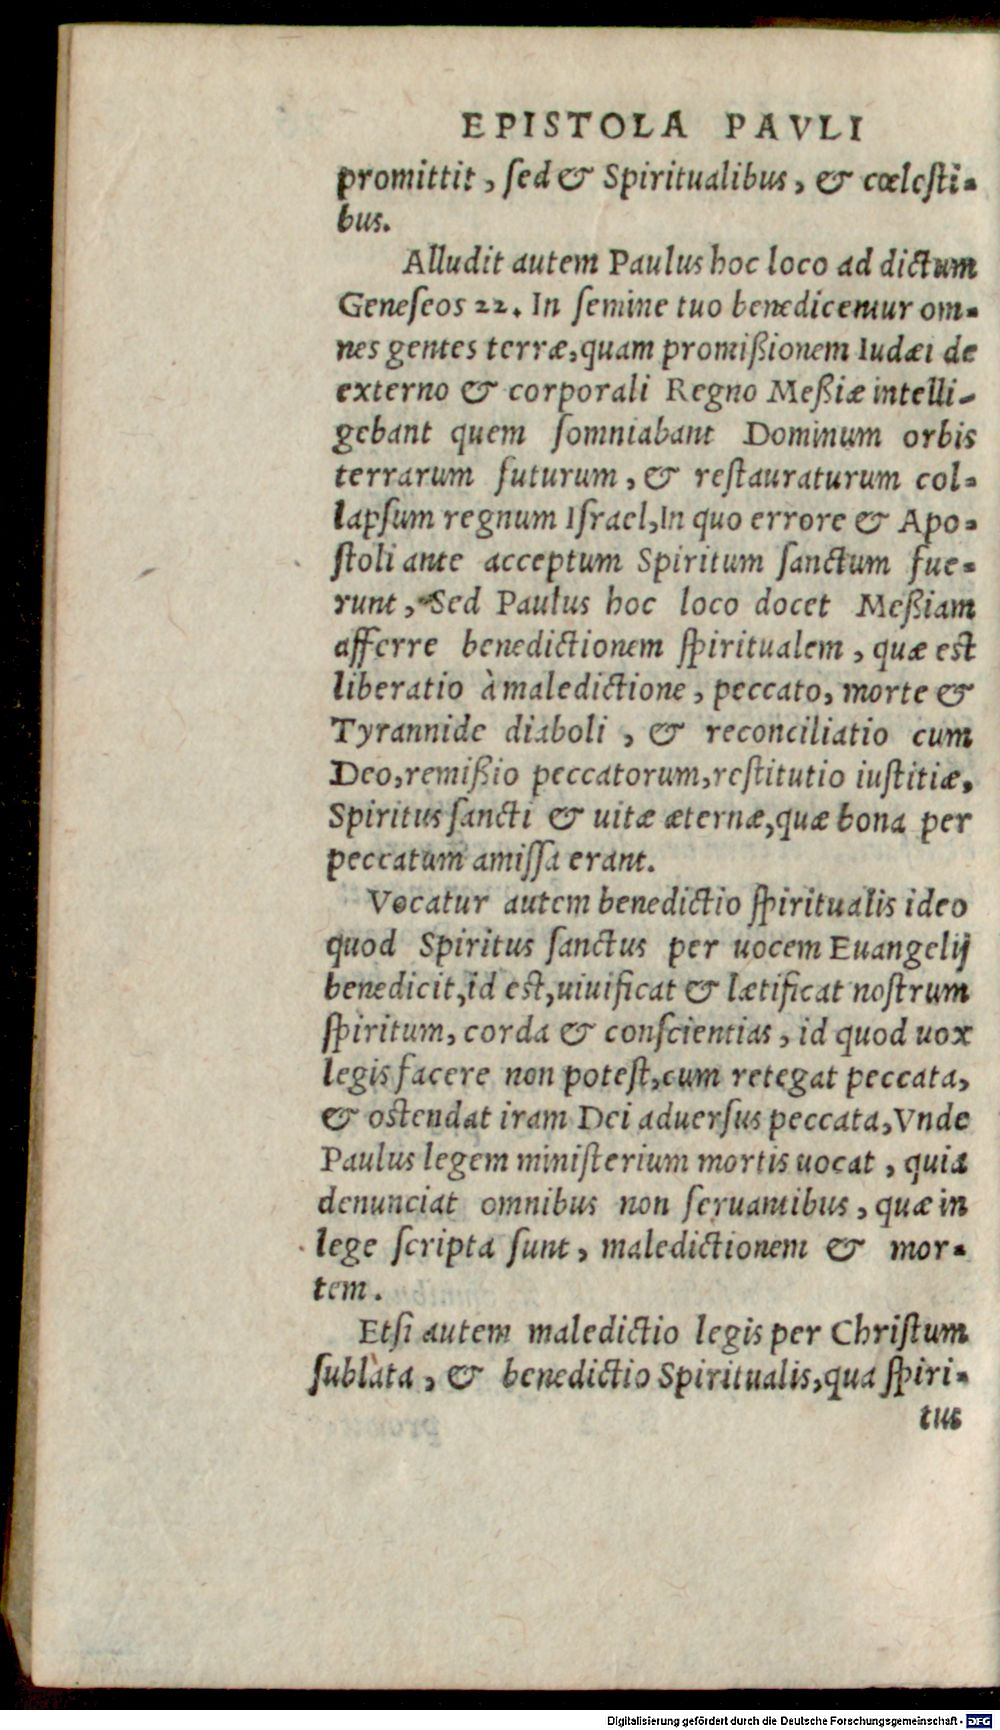 EPISTOLA PAVLI
promittit, ſed & Spiritualibus, & cœleſti-
bus.
Alludit autem Paulus hoc loco ad dictum
Geneſeos 22. In ſemine tuo benedicentur om-
nes gentes terræ, quam promißionem Iudæi de
externo & corporali Regno Meßiæ intelli-
gebant quem ſomniabant Dominum orbis
terrarum futurum, & reſtauraturum col-
lapſum regnum Iſrael, In quo errore & Apo-
ſtoli ante acceptum Spiritum ſanctum fue-
runt, Sed Paulus hoc loco docet Meßiam
afferre benedictionem ſpiritualem, quæ est
liberatio à maledictione, peccato, morte &
Tyrannide diaboli, & reconciliatio cum
Deo, remißio peccatorum, reſtitutio iuſtitiæ,
Spiritus ſancti & uitæ æternæ, quæ bona per
peccatum amiſſa erant.
Vocatur autem benedictio ſpiritualis ideo
quod Spiritus ſanctus per uocem Euangelij
benedicit, id est, uiuificat & lætificat noſtrum
ſpiritum, corda & conſcientias, id quod uox
legis facere non poteſt, cum retegat peccata,
& ostendat iram Dei aduerſus peccata, Vnde
Paulus legem miniſterium mortis uocat, quia
denunciat omnibus non ſeruantibus, quæ in
lege ſcripta ſunt, maledictionem & mor-
tem.
Etſi autem maledictio legis per Chriſtum
ſublata, & benedictio Spiritualis, qua ſpiri-
tus
Digitalisierung gefördert durch die Deutsche Forschungsgemeinschaft - DFG